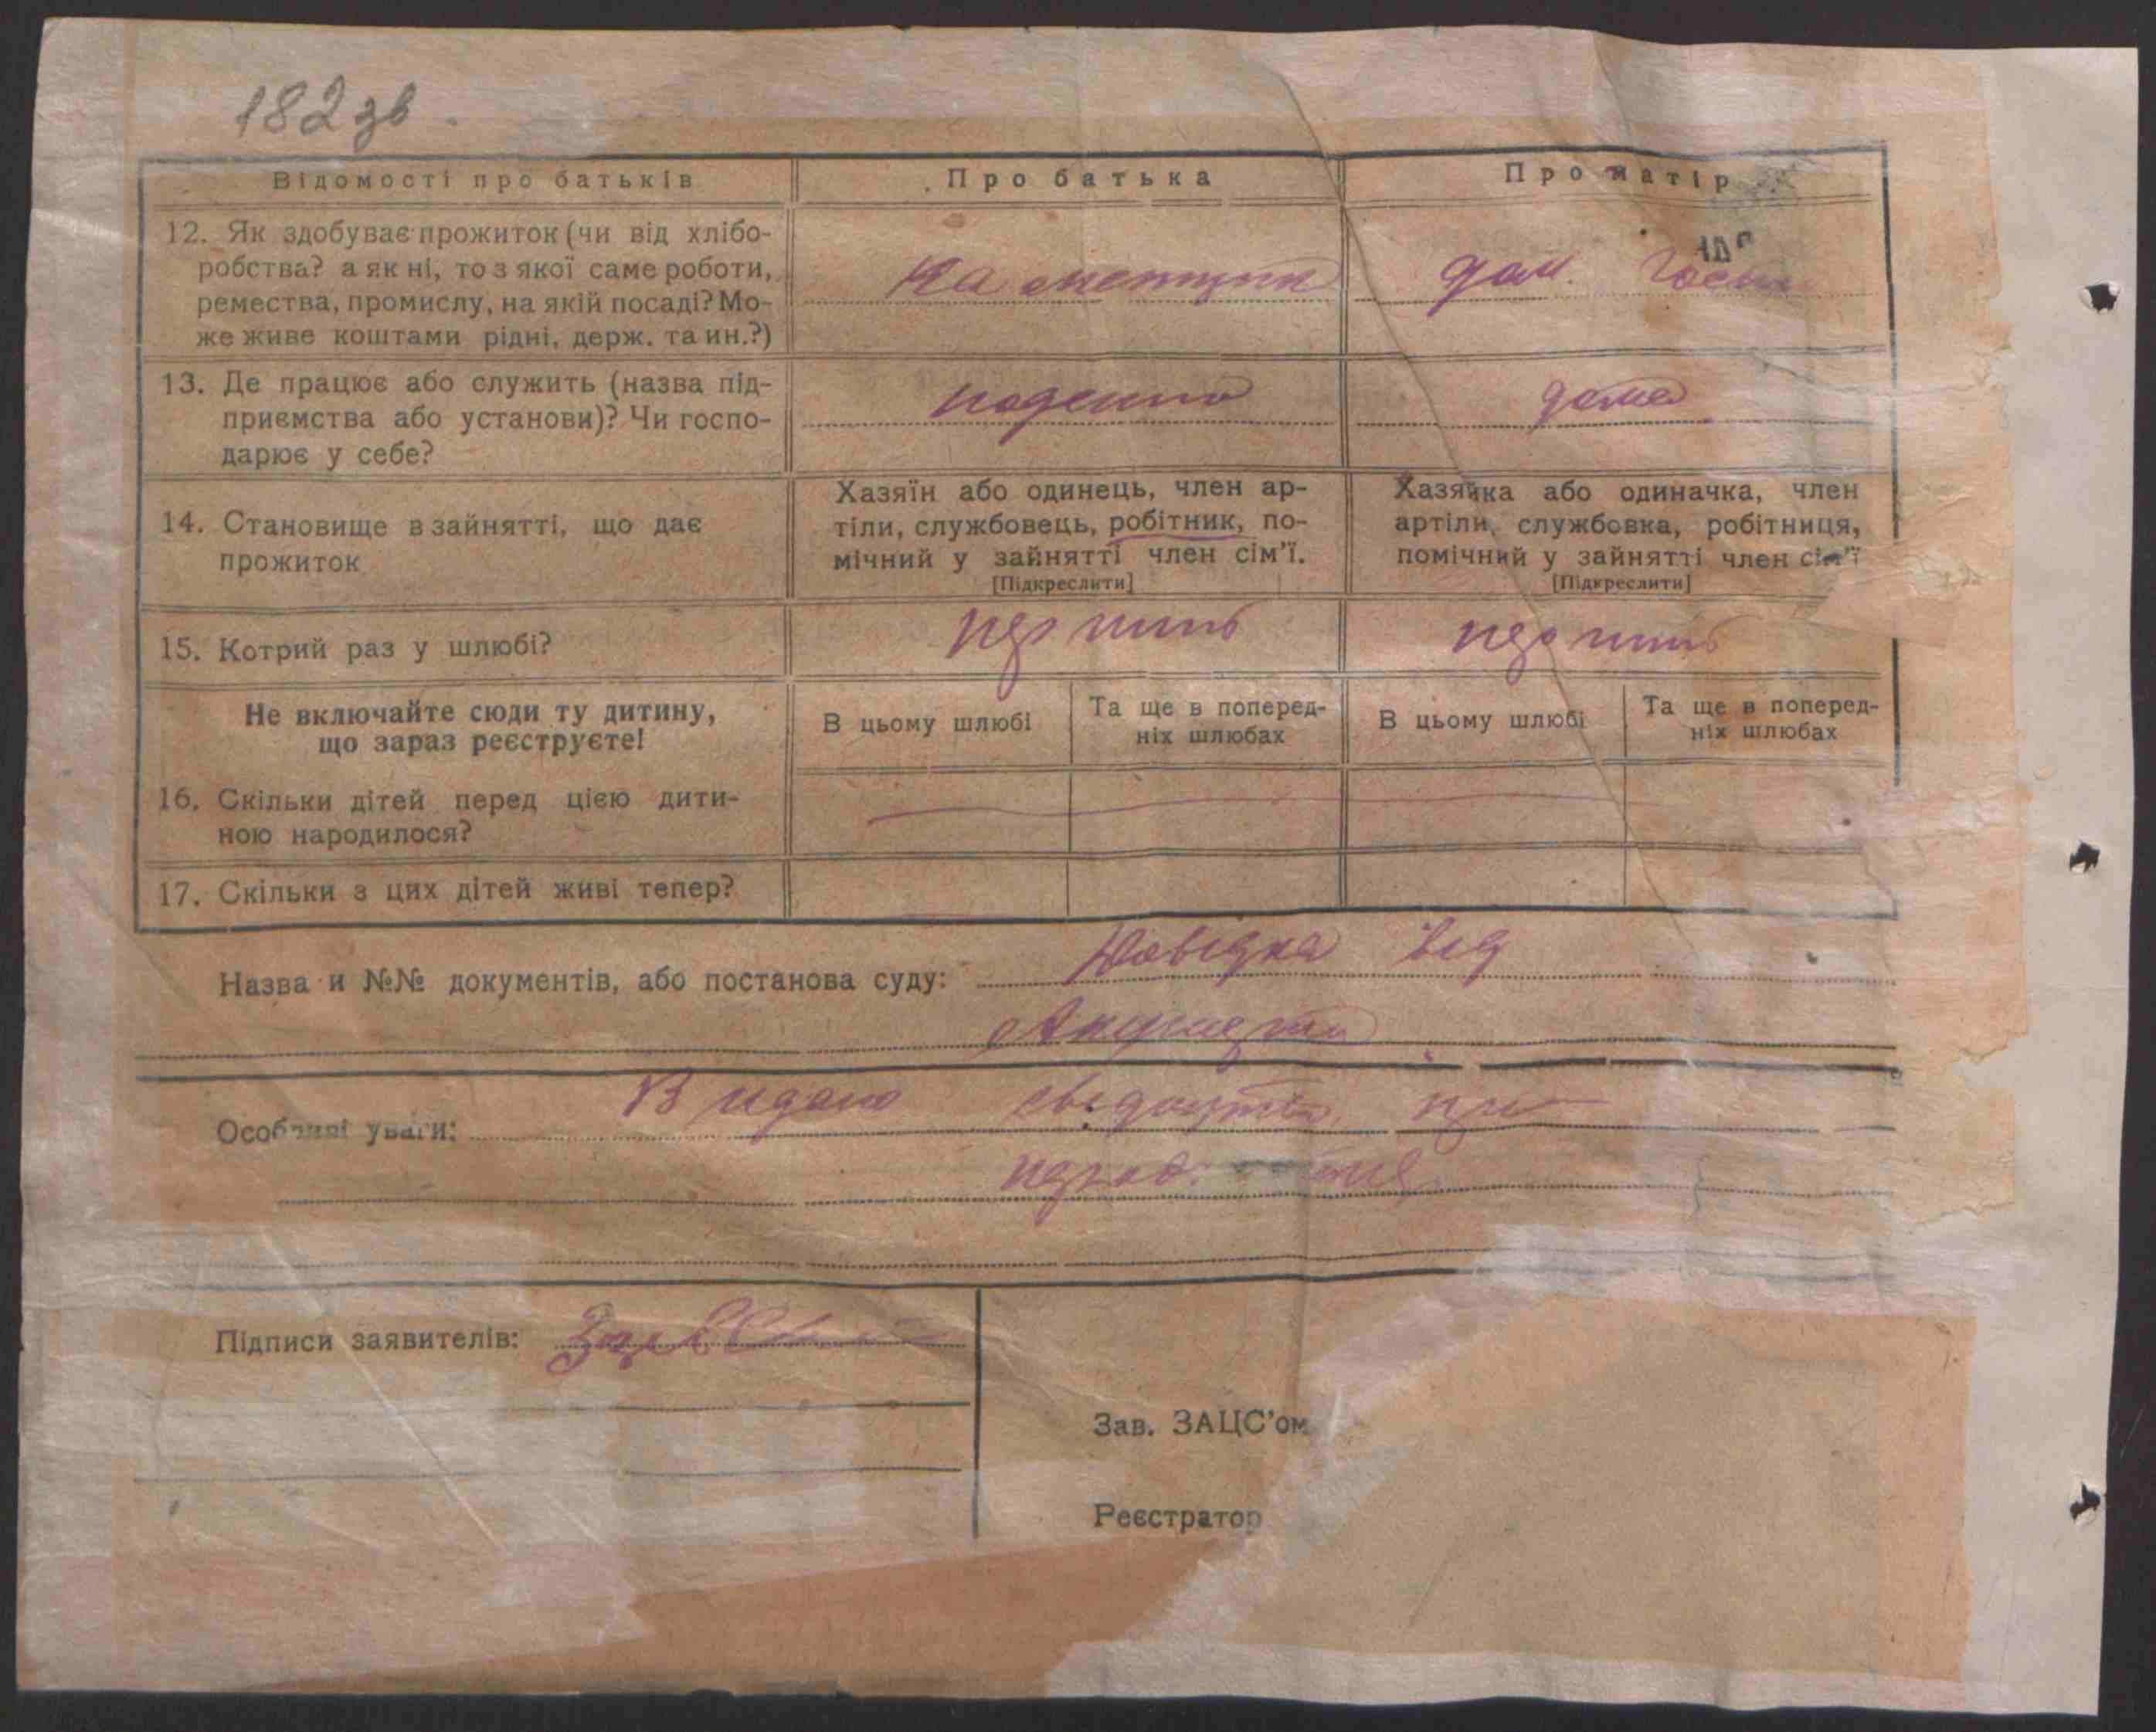 182 зв.
Відомості про батьків
Про батька
Про матір
12. Як здобуває прожиток (чи від хлібо-
робства? а як ні, то з якої саме роботи,
ремества, промислу, на якій посаді? Мо-
же живе коштами рідні, держ. та ин.?)
дом. Госп
13. Де працює або служить (назва під-
приємства або установи)? Чи госпо-
дарює у себе?
поденно
дома
14. Становище в зайнятті, що дає
прожиток
Хазяїн або одинець, член ар-
тіли, службовець, робітник, по-
мічний у зайнятті член сім'ї.
[Підкреслити]
Хазяйка або одиначка, член
артіли, службовка, робітниця,
помічний у зайнятті член сім'ї
[Підкреслити]
15. Котрий раз у шлюбі?
Не включайте сюди ту дитину,
що зараз реєструєте!
В цьому шлюбі
Та ще в поперед-
ніх шлюбах
В цьому шлюбі
Та ще в поперед-
ніх шлюбах
16. Скільки дітей перед цією дити-
ною народилося?
17. Скільки з цих дітей живі тепер?
Назва и №№ документів, або постанова суду: Довідка від
Особливі уваги: Видано свідоцтво
Підписи заявителів:
Зав. ЗАЦС'ом
Реєстратор